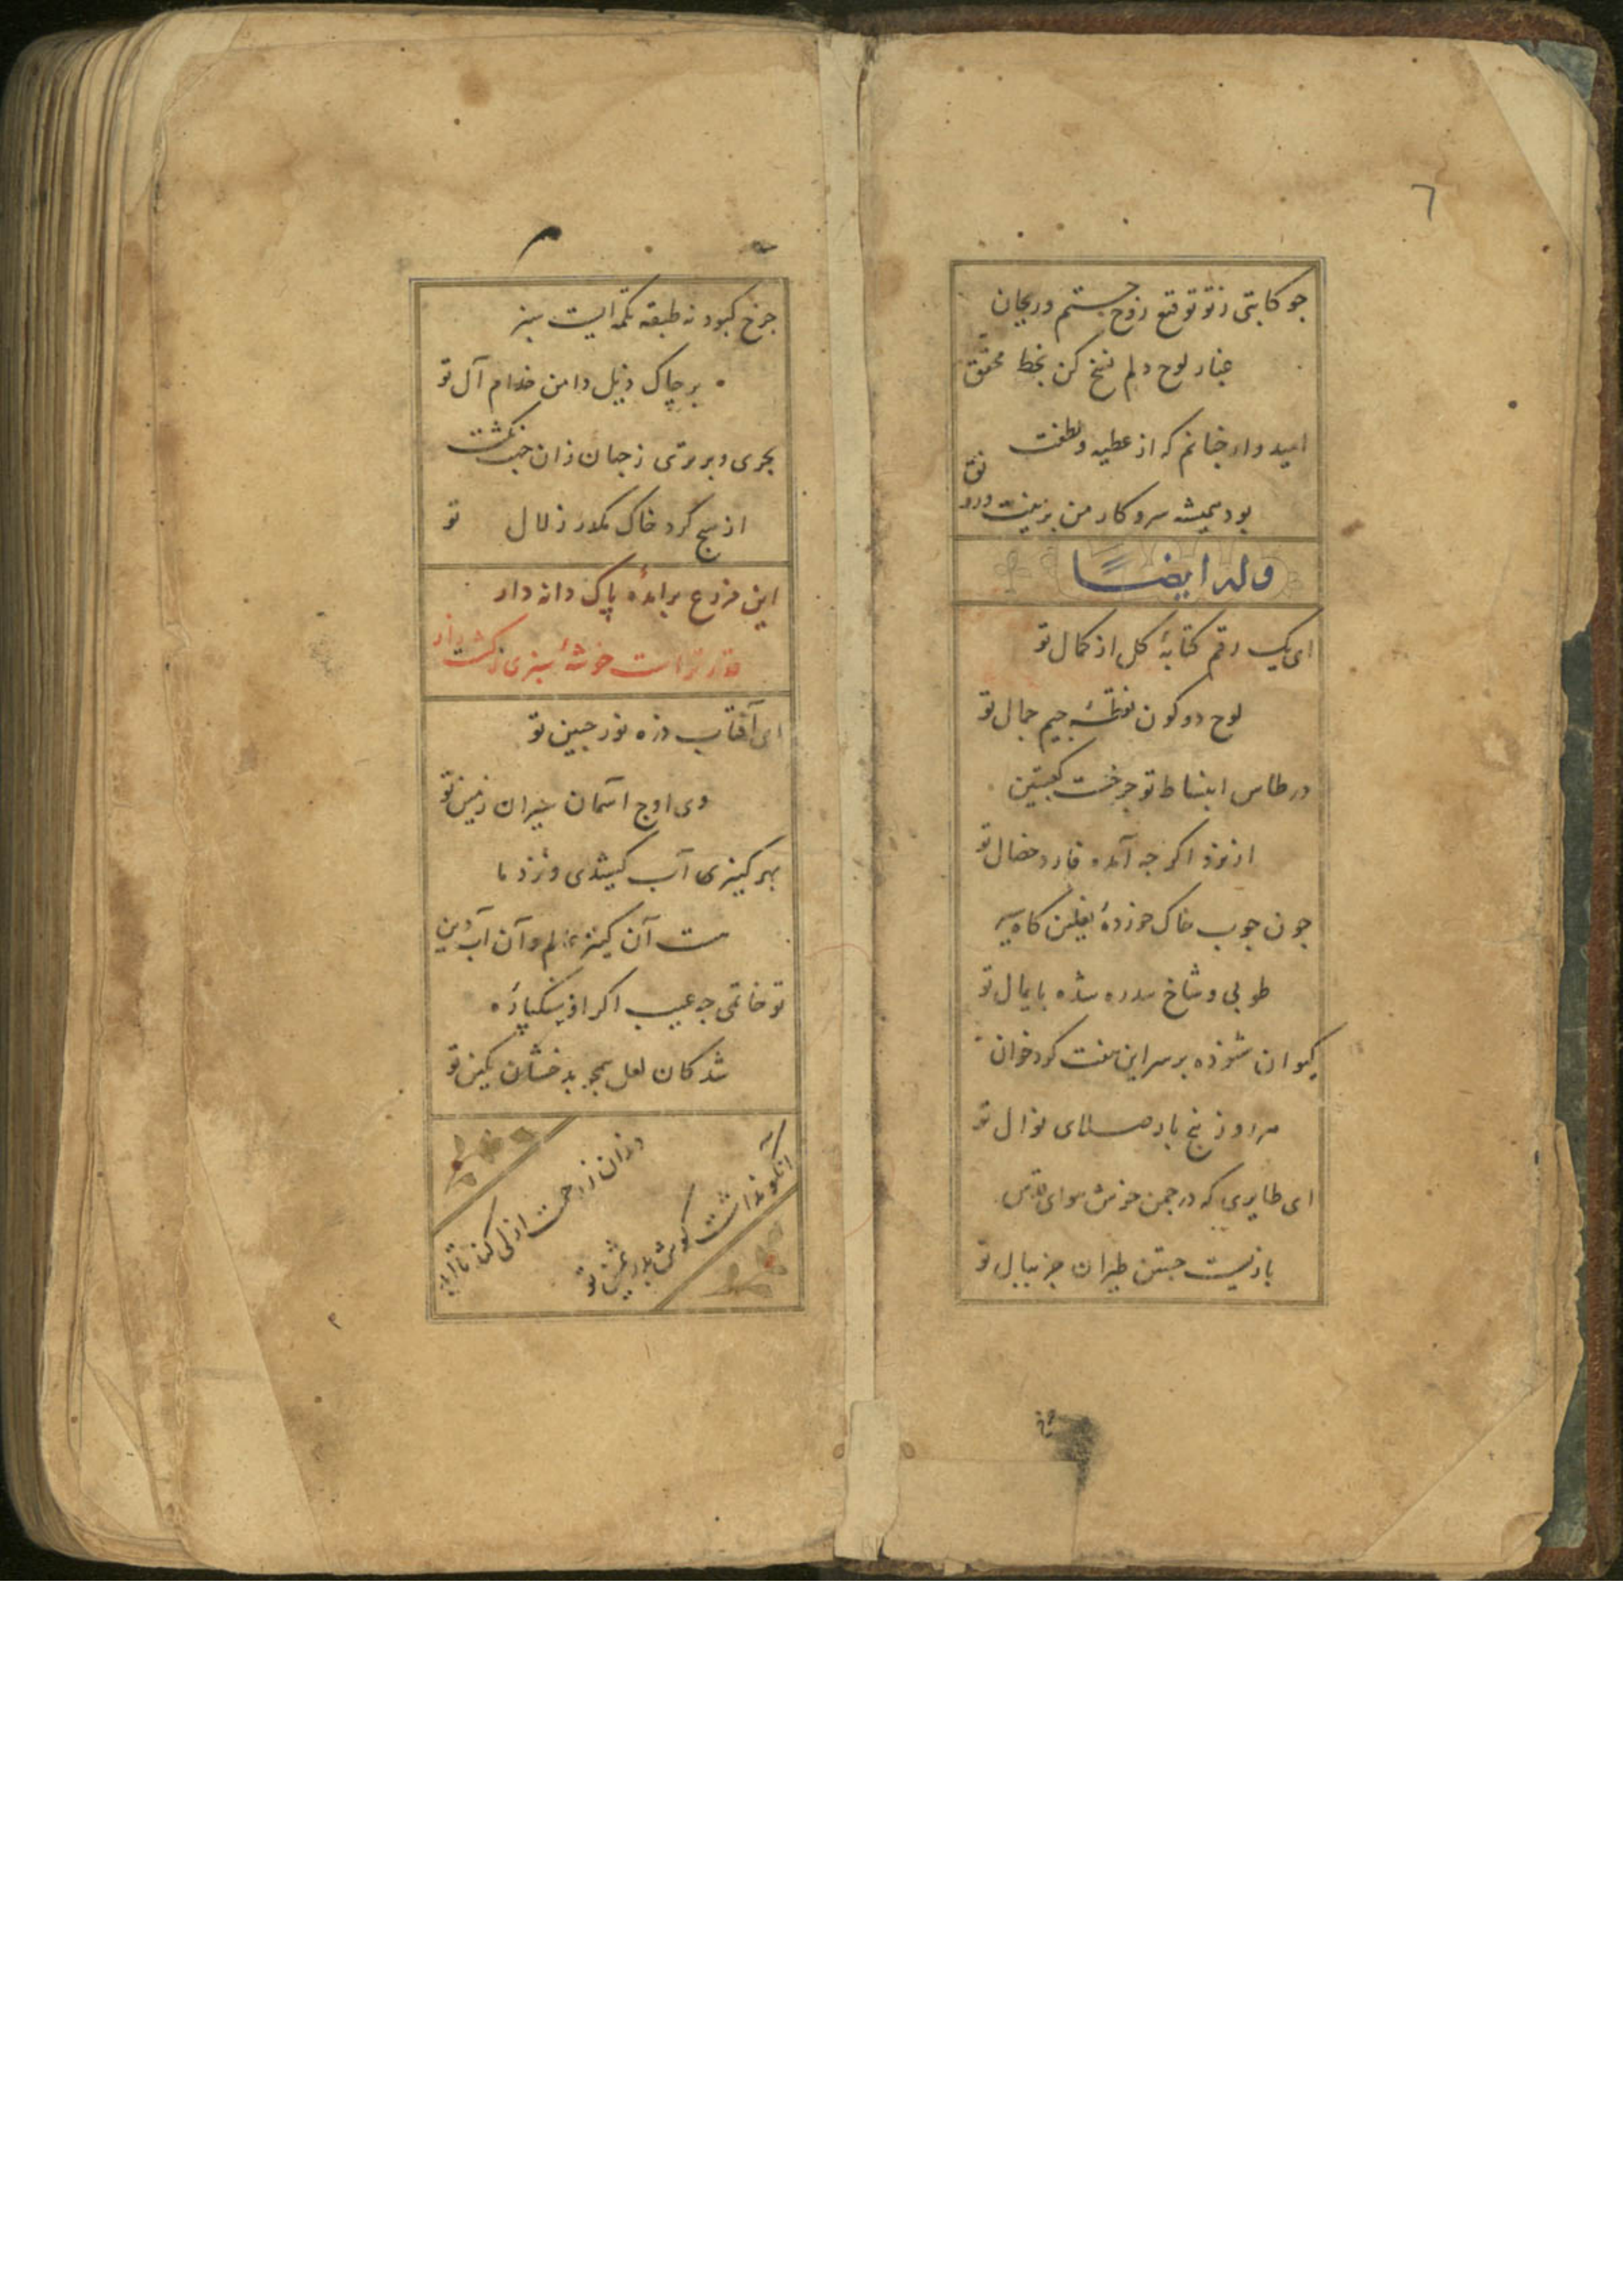 ٦
چو کاتبی ز تو توقیع روح جستم و ریحان
غبار لوح دلم نسخ کن بخط محقق
امیدوار چنانم که از عطیه و لطفت
بود همیشه سر و کار من بزینت و رونق
وله ایضاً
ای یک رقم کتابهٔ کل از کمال تو
لوح دو کون نقطهٔ جیم جمال تو
در طاس انبساط تو چرخست کعبتین
از نرد اگر چه آمده فارد خصال تو
چون چوب خاک خورده نعلین کاه
طوبی و شاخ سدره شده پایمال تو
کیوان ستوده بر سر این هفت کرد خوان
هر روز پنج بار صلای نوال تو
ای طایری که در چمن خوش هوای قدس
بازیست جستن طیران جز ببال تو
چرخ کبود نه طبقه تکمه ایست سبز
بر چاک ذیل دامن خدام آل تو
بحری و برتری ز جهان زان جهت نگشت
از هیچ گرد خاک مکدر زلال تو
این مزرع برآمدهٔ پاک دانه دار
خوشهٔ سبزی ز کشت زار
ای آفتاب ذره نور جبین تو
وی اوج آسمان حیران زمین تو
بهر کنیزی آب کشیدی و نزد ما
هست آن کنیز عالم و آن آب دین
تو خاتمی چه عیب اگر از سنگپاره
شد کان لعل همچو بدخشان نگین تو
آنکو نداشت گوش بدر ثمین تو
دندان ز رحمت ازلی کند تا ابد